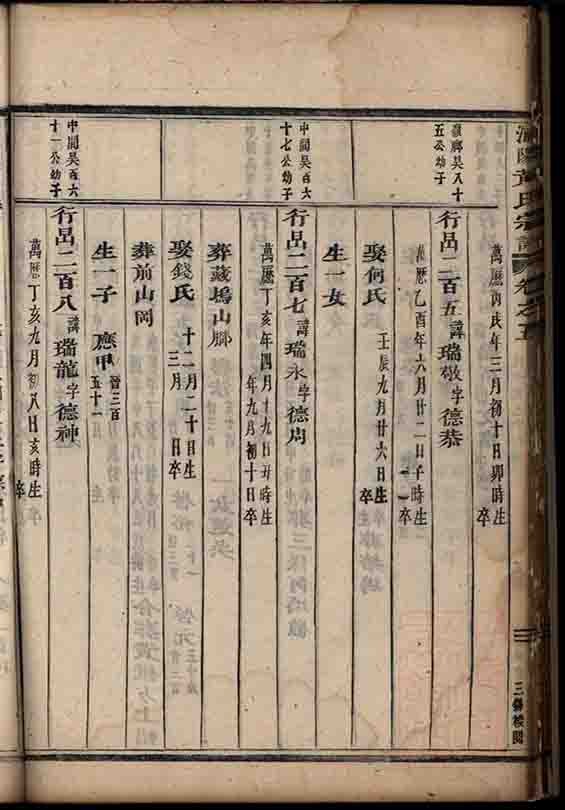 黃氏宗譜 卷之五
三餘樓閣
萬曆丙戌年三月初十日卯時生 卒
嶺鄉吳八十五公幼子
行昷二百五 諱瑞敬字德恭
萬曆乙酉年六月廿二日子時生 卒
娶何氏 壬辰九月廿六日生 卒
生一女
中閣吳百六十七公幼子
行昷二百七 諱瑞永字德周
萬曆丁亥年四月十九日丑時生 年九月初十日卒
葬藏塢山腳
娶錢氏 十二月二十日生 三月 日卒
葬前山岡
生一子 應甲 晉三百五十一
中閣吳百六十一公幼子
行昷二百八 諱瑞龍字德神
萬曆丁亥九月初八日亥時生 卒